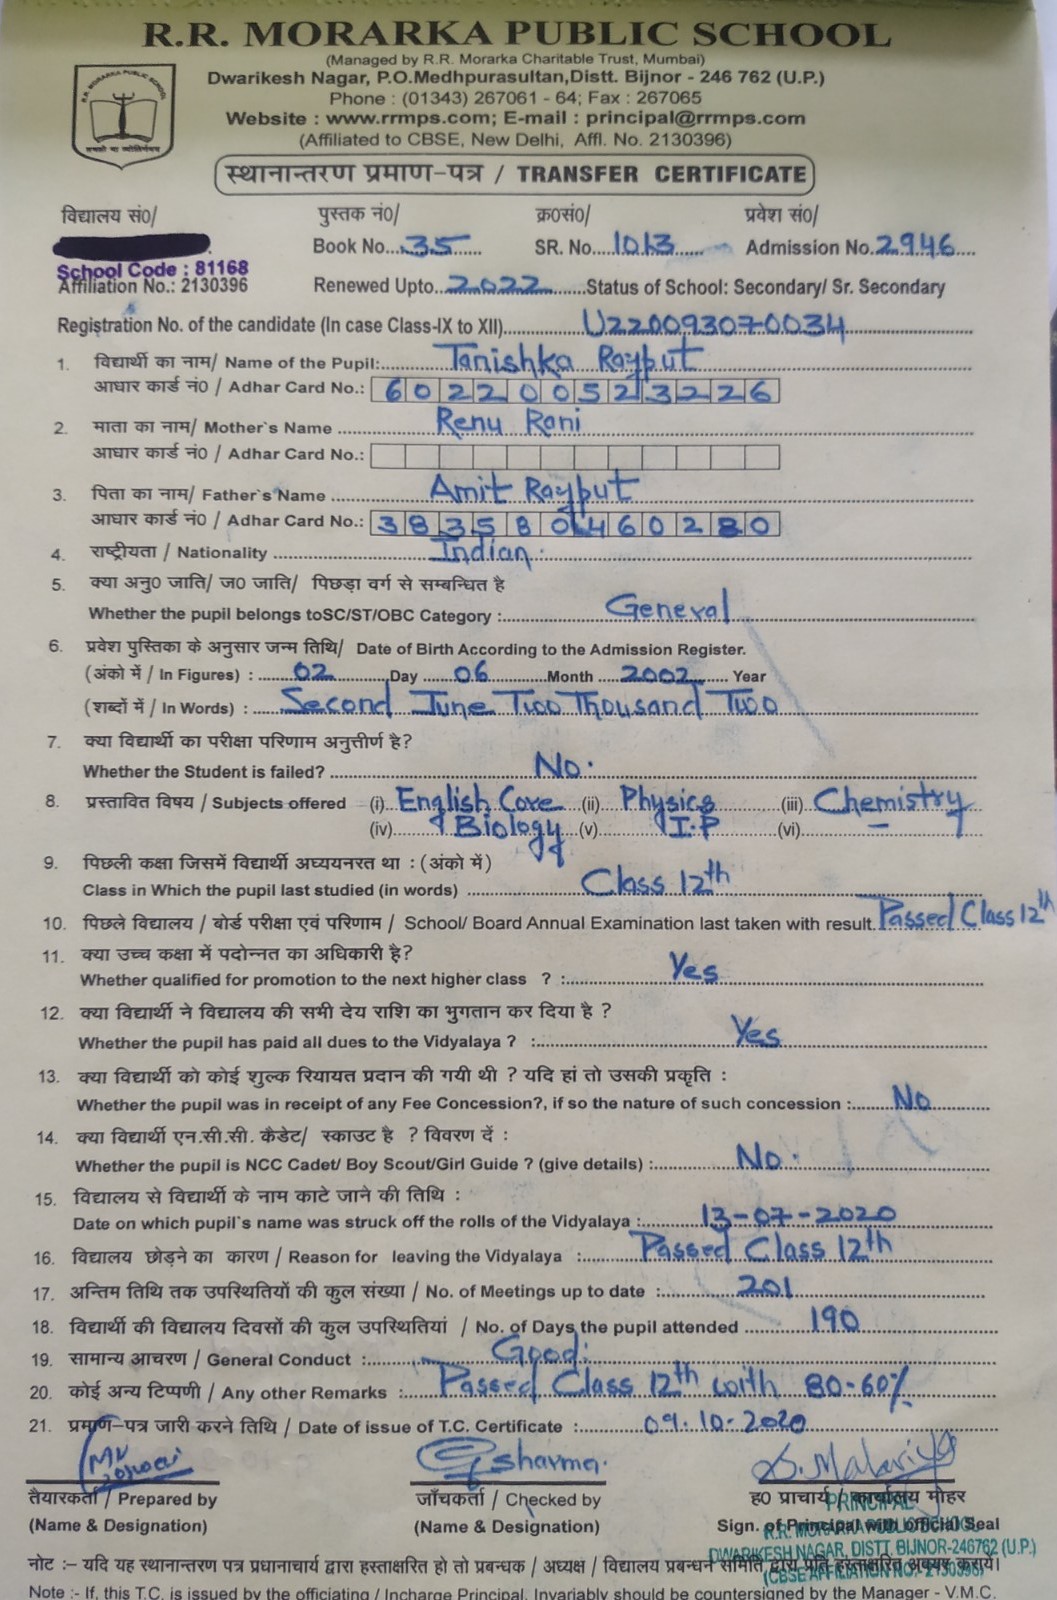 R.R. MORARKA PUBLIC SCHOOL
(Managed by R.R. Morarka Charitable Trust, Mumbai)
Dwarikesh Nagar, P.O.Medhpurasultan,Distt. Bijnor - 246 762 (U.P.)
Phone : (01343) 267061 - 64; Fax : 267065
Website : www.rrmps.com; E-mail : principal@rrmps.com
(Affiliated to CBSE, New Delhi, Affl. No. 2130396)
R.R. MORARKA PUBLIC SCHOOL
स्थानान्तरण प्रमाण-पत्र / TRANSFER CERTIFICATE
विद्यालय सं०/ पुस्तक नं०/ क्र०सं०/ प्रवेश सं०/
Book No. 35 SR. No. 1013 Admission No. 2946
School Code : 81168
Affiliation No.: 2130396 Renewed Upto 2022 Status of School: Secondary/ Sr. Secondary
Registration No. of the candidate (In case Class-IX to XII) U220093070034
1. विद्यार्थी का नाम/ Name of the Pupil: Tanishka Rajput
आधार कार्ड नं० / Adhar Card No.: 602200523226
2. माता का नाम/ Mother's Name Renu Rani
आधार कार्ड नं० / Adhar Card No.:
3. पिता का नाम/ Father's Name Amit Rajput
आधार कार्ड नं० / Adhar Card No.: 383580460280
4. राष्ट्रीयता / Nationality Indian.
5. क्या अनु० जाति/ ज० जाति/ पिछड़ा वर्ग से सम्बन्धित है
Whether the pupil belongs toSC/ST/OBC Category : General
6. प्रवेश पुस्तिका के अनुसार जन्म तिथि/ Date of Birth According to the Admission Register.
(अंको में / In Figures) : 02 Day 06 Month 2002 Year
(शब्दों में / In Words) : Second June Two Thousand Two
7. क्या विद्यार्थी का परीक्षा परिणाम अनुत्तीर्ण है?
Whether the Student is failed? No.
8. प्रस्तावित विषय / Subjects offered (i) English Core (ii) Physics (iii) Chemistry
(iv) Biology (v) I.P (vi) —
9. पिछली कक्षा जिसमें विद्यार्थी अघ्ययनरत था : (अंको में)
Class in Which the pupil last studied (in words) Class 12th
10. पिछले विद्यालय / बोर्ड परीक्षा एवं परिणाम / School/ Board Annual Examination last taken with result. Passed Class 12th
11. क्या उच्च कक्षा में पदोन्नत का अधिकारी है?
Whether qualified for promotion to the next higher class ? : Yes
12. क्या विद्यार्थी ने विद्यालय की सभी देय राशि का भुगतान कर दिया है ?
Whether the pupil has paid all dues to the Vidyalaya ? : Yes
13. क्या विद्यार्थी को कोई शुल्क रियायत प्रदान की गयी थी ? यदि हां तो उसकी प्रकृति :
Whether the pupil was in receipt of any Fee Concession?, if so the nature of such concession : No
14. क्या विद्यार्थी एन.सी.सी. कैडेट/ स्काउट है ? विवरण दें :
Whether the pupil is NCC Cadet/ Boy Scout/Girl Guide ? (give details) : No.
15. विद्यालय से विद्यार्थी के नाम काटे जाने की तिथि :
Date on which pupil's name was struck off the rolls of the Vidyalaya : 13-07-2020
16. विद्यालय छोड़ने का कारण / Reason for leaving the Vidyalaya : Passed Class 12th
17. अन्तिम तिथि तक उपस्थितियों की कुल संख्या / No. of Meetings up to date : 201
18. विद्यार्थी की विद्यालय दिवसों की कुल उपस्थितियां / No. of Days the pupil attended 190
19. सामान्य आचरण / General Conduct : Good.
20. कोई अन्य टिप्पणी / Any other Remarks : Passed Class 12th with 80-60%
21. प्रमाण-पत्र जारी करने तिथि / Date of issue of T.C. Certificate : 09.10-2020
Gsharma. S. Malaviya
तैयारकर्ता / Prepared by जाँचकर्ता / Checked by ह० प्राचार्य / कार्यालय मोहर
PRINCIPAL
(Name & Designation) (Name & Designation) Sign. of Principal with official Seal
R.R. MORARKA PUBLIC SCHOOL
DWARIKESH NAGAR, DISTT. BIJNOR-246762 (U.P.)
(CBSE AFFILIATION NO.- 2130396)
नोट :– यदि यह स्थानान्तरण पत्र प्रधानाचार्य द्वारा हस्ताक्षरित हो तो प्रबन्धक / अध्यक्ष / विद्यालय प्रबन्धन समिति द्वारा प्रति हस्ताक्षरित अवश्य करायें।
Note :- If, this T.C. is issued by the officiating / Incharge Principal. Invariably should be countersigned by the Manager - V.M.C.